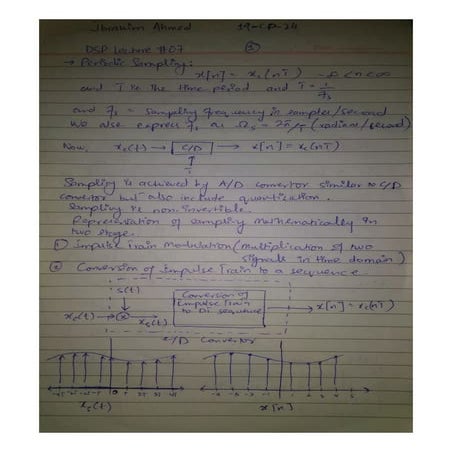 Ibrahim Ahmed 19-CP-24
DSP Lecture #07 ①
→ Periodic Sampling:
x[n] = xc(nT) -∞ < n < ∞
and T is the time period and T = 1/fs
and fs = Sampling frequency in samples/second
We also express fs as Ωs = 2π/T (radian/second)
Now, xc(t) → C/D → x[n] = xc(nT)
↑
T
Sampling is achieved by A/D convertor similar to C/D
convertor but also include quantisation.
Sampling is non-invertible.
Representation of sampling mathematically in
two stage.
① Impulse Train Modulation (multiplication of two
signals in time domain)
② Conversion of impulse Train to a sequence
s(t)
Conversion of
Impulse Train
to Dis sequence
xc(t) → ⊗ → xs(t) → x[n] = xc(nT)
C/D Convertor
xs(t) x[n]